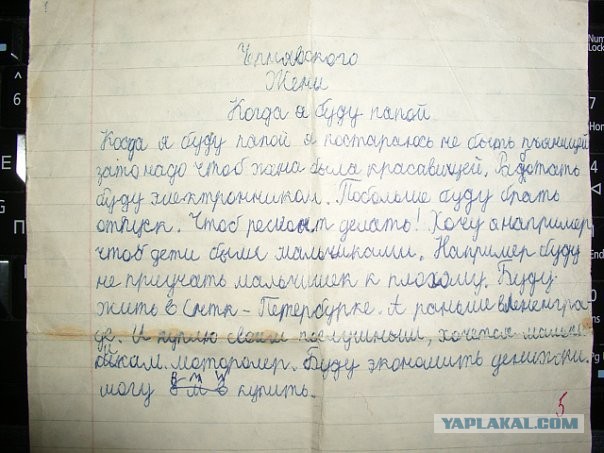 Чернявского
Жени
Когда я буду папой
Когда я буду папой я постараюсь не быть пьяницей
зато надо чтоб жана была красавицей. Работать
буду электронником. Побольше буду брать
отпуск. Чтоб ремонт делать! Хочу а например,
чтоб дети были мальчиками. Например буду
не приучать мальчишек к плохому. Буду
жить в Снтк-Петербурке. А раньше в Ленингра
де. И куплю своим послушным, хочется мальч
икам. мотороллер. Буду экономить денижки.
могу БМВ купить.
5
YAPLAKAL.COM